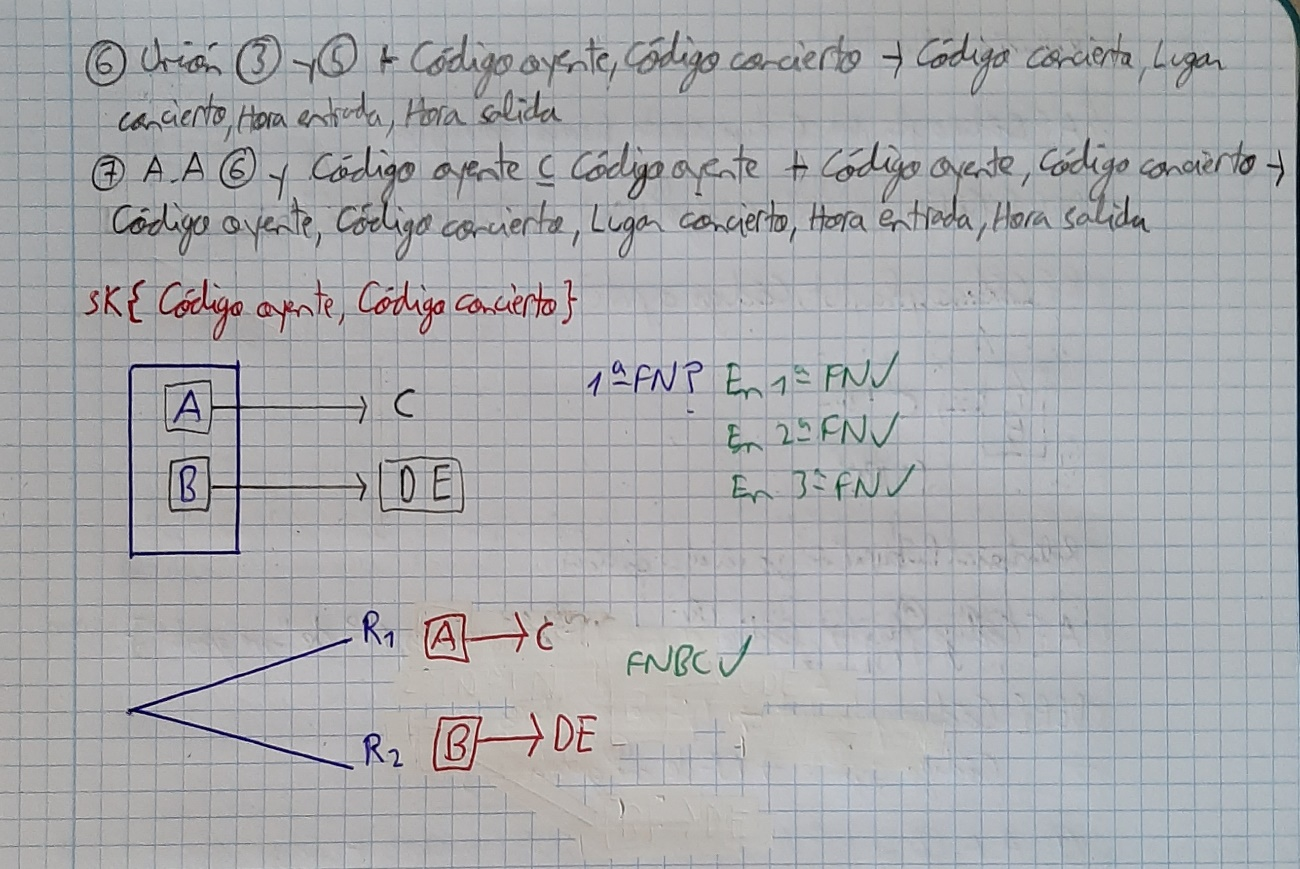 ⑥ Unión ③ y ⑤ ⊢ Código oyente, Código concierto → Código concierto, Lugar
concierto, Hora entrada, Hora salida
⑦ A.A ⑥ y Código oyente ⊆ Código oyente ⊢ Código oyente, Código concierto →
Código oyente, Código concierto, Lugar concierto, Hora entrada, Hora salida
SK{ Código oyente, Código concierto }
A → C
1ª FN? En 1ª FN✓
En 2ª FN✓
B → D E
En 3ª FN✓
R₁ A → C
FNBC ✓
R₂ B → DE